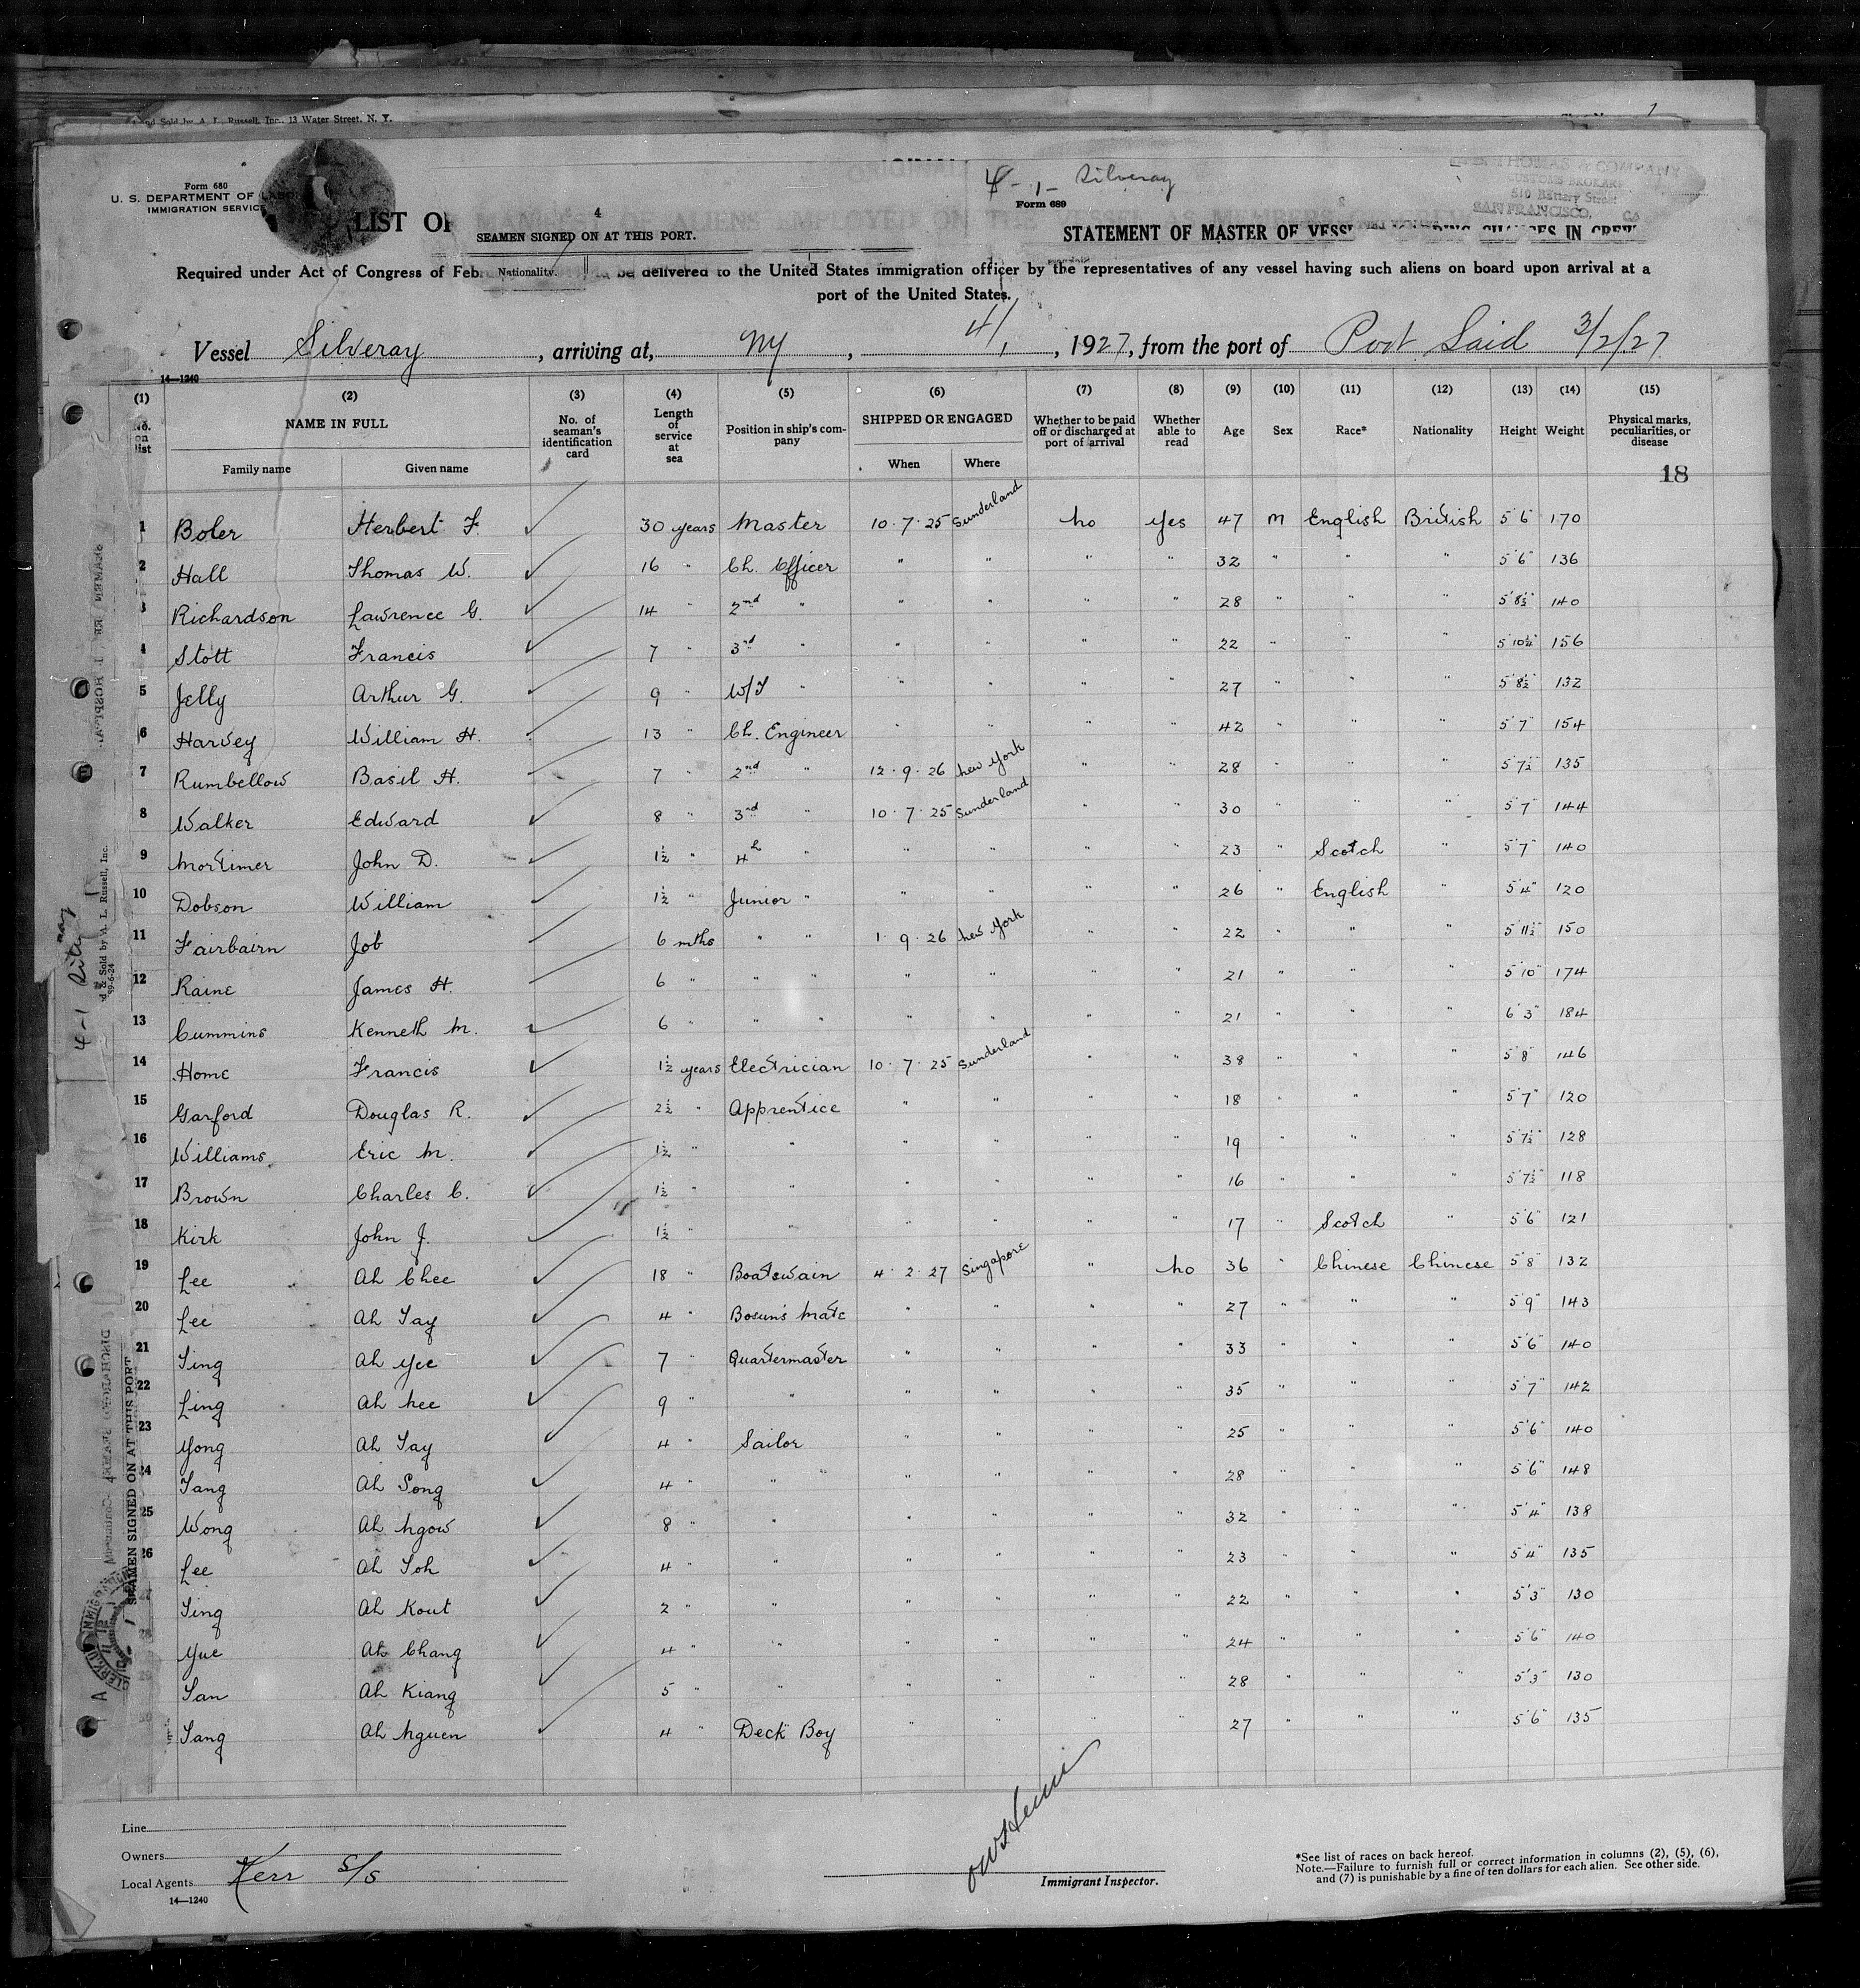 and Sold by A. L. Russell, Inc., 13 Water Street, N. Y.
1
Form 680
U. S. DEPARTMENT OF LABOR
IMMIGRATION SERVICE
ORIGINAL
4 - 1 - Silveray
THOMAS & COMPANY
CUSTOMS BROKERS
510 Battery Street
SAN FRANCISCO,
4
Form 689
LIST OF
SEAMEN SIGNED ON AT THIS PORT.
STATEMENT OF MASTER OF VESSEL
CHANGES IN CREW
Required under Act of Congress of Feb
Nationality.
be delivered to the United States immigration officer by the representatives of any vessel having such aliens on board upon arrival at a
port of the United States.
Vessel Silveray, arriving at, NY, 4/1, 1927, from the port of Port Said 3/2/27
14—1240
(1) (2) (3) (4) (5) (6) (7) (8) (9) (10) (11) (12) (13) (14) (15)
No. on list NAME IN FULL No. of seaman's identification card Length of service at sea Position in ship's company SHIPPED OR ENGAGED Whether to be paid off or discharged at port of arrival Whether able to read Age Sex Race* Nationality Height Weight Physical marks, peculiarities, or disease
Family name Given name When Where
18
1 Boler Herbert F. 30 years Master 10.7.25 Sunderland no yes 47 M English British 5'6" 170
2 Hall Thomas W. 16 " Ch. Officer " " " " 32 " " " 5'6" 136
3 Richardson Lawrence G. 14 " 2nd " " " " " 28 " " " 5'8½" 140
4 Stott Francis 7 " 3rd " " " " " 22 " " " 5'10½" 156
5 Jelly Arthur G. 9 " W/T " " " " " 27 " " " 5'8½" 132
6 Harvey William H. 13 " Ch. Engineer " " " " 42 " " " 5'7" 154
7 Rumbellow Basil H. 7 " 2nd " 12.9.26 New York " " 28 " " " 5'7½" 135
8 Walker Edward 8 " 3rd " 10.7.25 Sunderland " " 30 " " " 5'7" 144
9 Mortimer John D. 1½ " 4th " " " " " 23 " Scotch " 5'7" 140
10 Dobson William 1½ " Junior " " " " " 26 " English " 5'4" 120
11 Fairbairn Job 6 mths " " 1.9.26 New York " " 22 " " " 5'11½" 150
12 Raine James H. 6 " " " " " " " 21 " " " 5'10" 174
13 Cummins Kenneth M. 6 " " " " " " " 21 " " " 6'3" 184
14 Home Francis 1½ years Electrician 10.7.25 Sunderland " " 38 " " " 5'8" 146
15 Garford Douglas R. 2½ " Apprentice " " " " 18 " " " 5'7" 120
16 Williams Eric M. 1½ " " " " " " 19 " " " 5'7½" 128
17 Brown Charles C. 1½ " " " " " " 16 " " " 5'7½" 118
18 Kirk John J. 1½ " " " " " " 17 " Scotch " 5'6" 121
19 Lee Ah Chee 18 " Boatswain 4.2.27 Singapore " no 36 " Chinese Chinese 5'8" 132
20 Lee Ah Tay 4 " Bosun's Mate " " " " 27 " " " 5'9" 143
21 Ting Ah Yee 7 " Quartermaster " " " " 33 " " " 5'6" 140
22 Ling Ah Nee 9 " " " " " " 35 " " " 5'7" 142
23 Yong Ah Tay 4 " Sailor " " " " 25 " " " 5'6" 140
24 Tang Ah Song 4 " " " " " " 28 " " " 5'6" 148
25 Wong Ah Ngow 8 " " " " " " 32 " " " 5'4" 138
26 Lee Ah Toh 4 " " " " " " 23 " " " 5'4" 135
27 Ting Ah Kout 2 " " " " " " 22 " " " 5'3" 130
28 Yue Ah Chang 4 " " " " " " 24 " " " 5'6" 140
29 Tan Ah Kiang 5 " " " " " " 28 " " " 5'3" 130
30 Tang Ah Nguen 4 " Deck Boy " " " " 27 " " " 5'6" 135
4-1
d & Sold by A. L. Russell, Inc.
SEAMEN SIGNED ON AT THIS PORT
Line
Owners
Local Agents Kerr S/S
14—1240
Immigrant Inspector.
*See list of races on back hereof.
Note.—Failure to furnish full or correct information in columns (2), (5), (6),
and (7) is punishable by a fine of ten dollars for each alien. See other side.